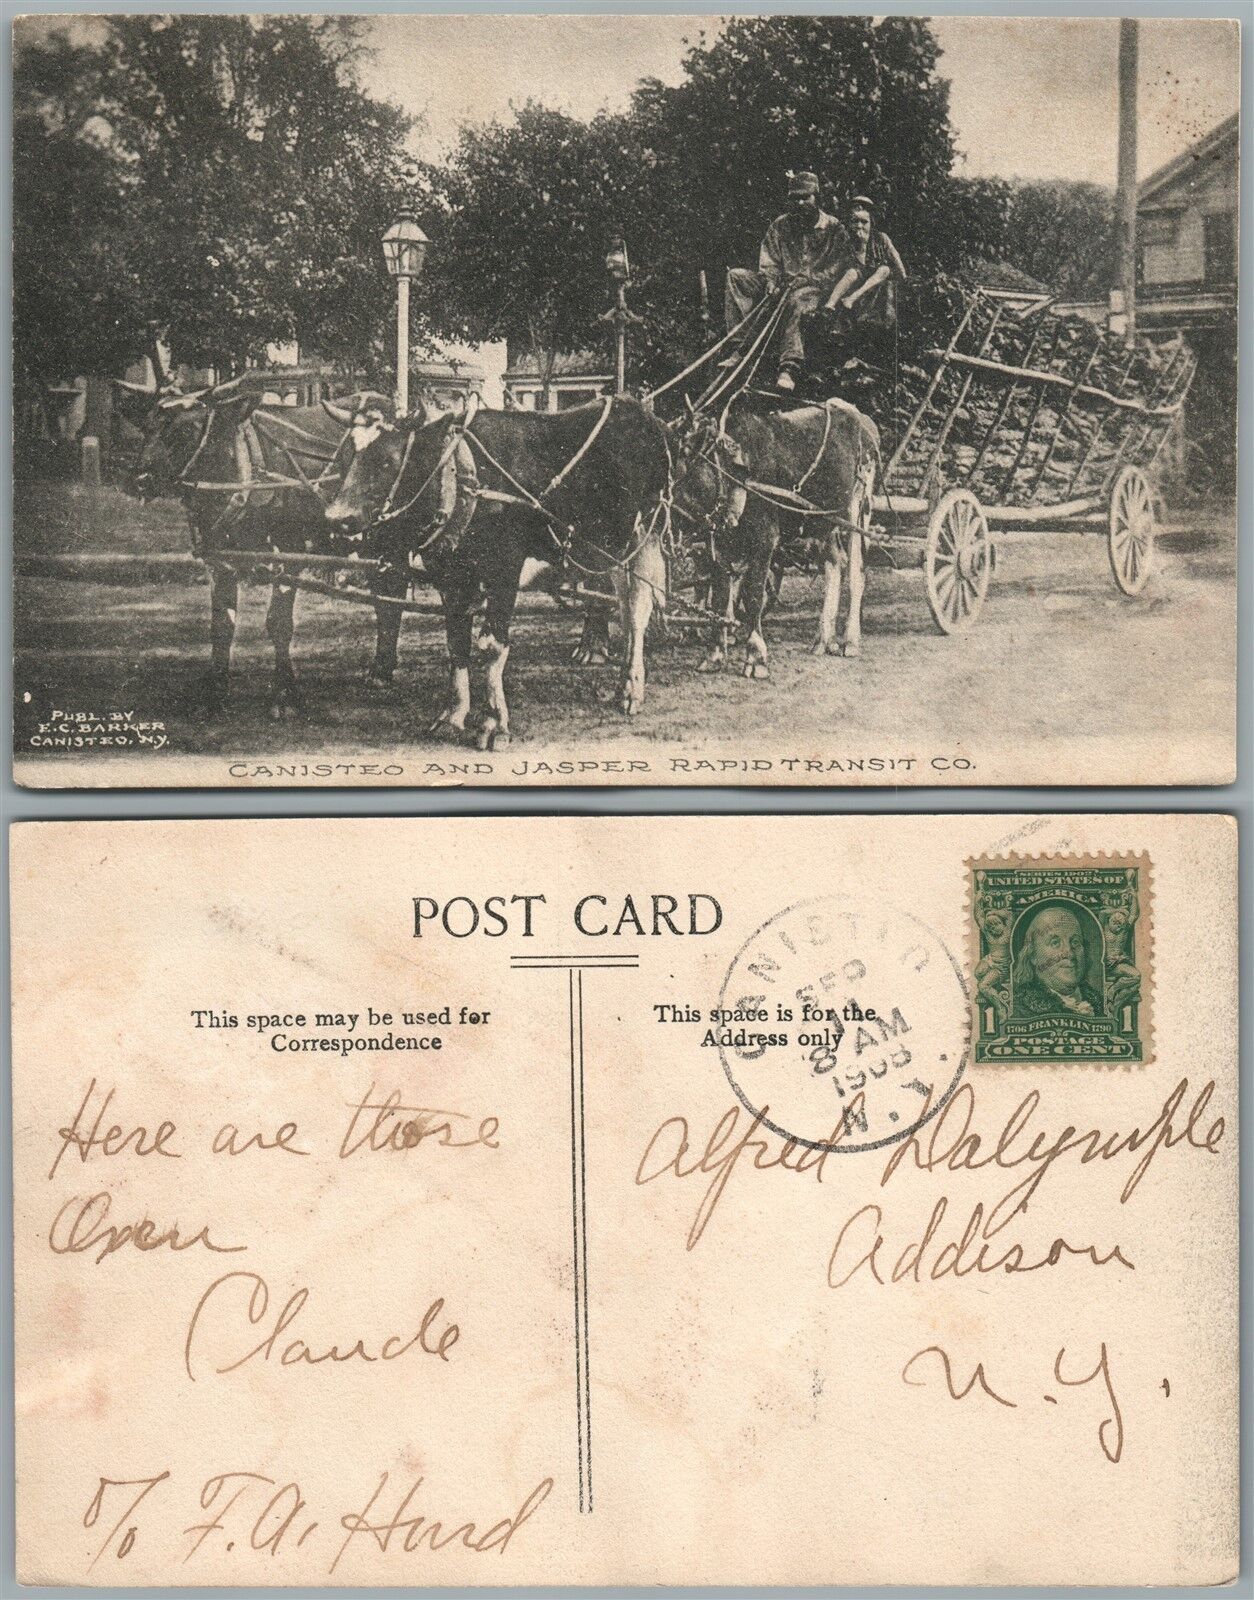 PUBL. BY
E.C. BARKER
CANISTEO, N.Y.
CANISTEO AND JASPER RAPID TRANSIT CO.
POST CARD
This space may be used for
Correspondence
This space is for the
Address only
CANISTEO
SEP
8 AM
1908
N.Y.
SERIES 1902
UNITED STATES OF
AMERICA
1 1706 FRANKLIN 1790 1
POSTAGE
ONE CENT
Here are those
Oxen
Claude
c/o F. A. Hurd
Alfred Dalrymple
Addison
N. Y.